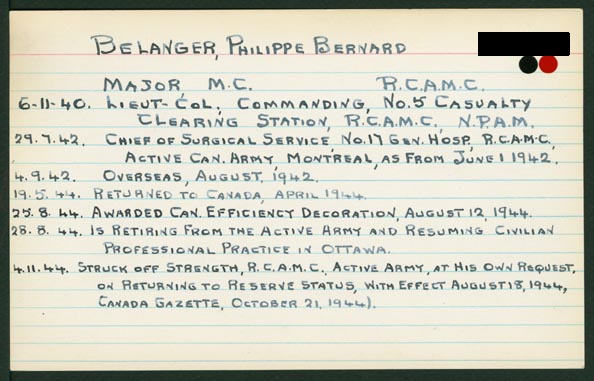 BELANGER, PHILIPPE BERNARD
MAJOR M.C. R.C.A.M.C.
6-11-40. LIEUT-COL. COMMANDING, NO.5 CASUALTY
CLEARING STATION, R.C.A.M.C., N.P.A.M.
29.7.42. CHIEF OF SURGICAL SERVICE, NO.17 GEN. HOSP., R.C.A.M.C.,
ACTIVE CAN. ARMY, MONTREAL, AS FROM JUNE 1 1942.
4.9.42. OVERSEAS, AUGUST, 1942.
19.5.44. RETURNED TO CANADA, APRIL 1944.
25.8.44. AWARDED CAN. EFFICIENCY DECORATION, AUGUST 12, 1944.
28.8.44. IS RETIRING FROM THE ACTIVE ARMY AND RESUMING CIVILIAN
PROFESSIONAL PRACTICE IN OTTAWA.
4.11.44. STRUCK OFF STRENGTH, R.C.A.M.C., ACTIVE ARMY, AT HIS OWN REQUEST,
ON RETURNING TO RESERVE STATUS, WITH EFFECT AUGUST 18, 1944,
CANADA GAZETTE, OCTOBER 21, 1944).